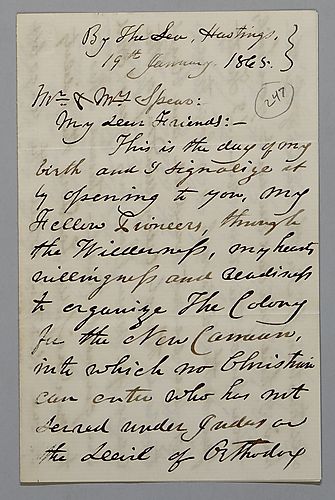 By The Sea, Hastings,
19th January. 1865.
247
Mr. & Mrs Spear:
My dear Friends:—
This is the day of my
birth and I signalize it
by opening to you, my
Fellow Pioneers, through
the Wilderness, my hearts
willingness and readiness
to organize The Colony
for the New Canaan,
into which no Christian
can enter who has not
served under Judas or
the Devil of Orthodox